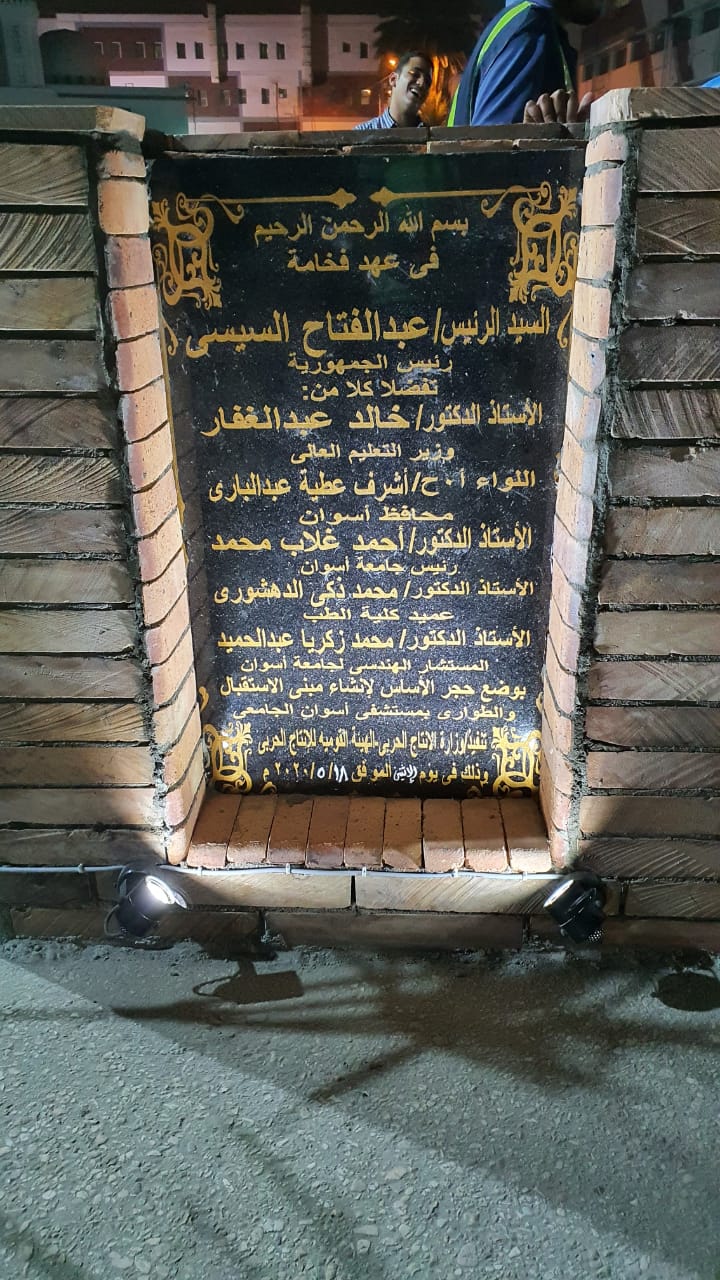 بسم الله الرحمن الرحيم
فى عهد فخامة
السيد الرئيس/عبدالفتاح السيسى
رئيس الجمهورية
تفضلا كلا من:
الأستاذ الدكتور/خالد عبدالغفار
وزير التعليم العالى
اللواء أ.ح/أشرف عطية عبدالبارى
محافظ أسوان
الأستاذ الدكتور/أحمد غلاب محمد
رئيس جامعة أسوان
الأستاذ الدكتور/محمد ذكى الدهشورى
عميد كلية الطب
الأستاذ الدكتور/محمد زكريا عبدالحميد
المستشار الهندسى لجامعة أسوان
بوضع حجر الأساس لإنشاء مبنى الاستقبال
والطوارى بمستشفى أسوان الجامعي
تنفيذ/وزارة الانتاج الحربى-الهيئة القومية للإنتاج الحربى
وذلك فى يوم الإثنين الموفق ٢٠٢٠/٥/١٨ م